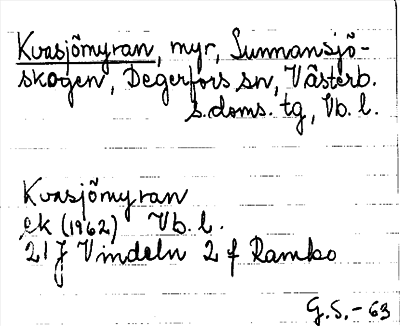 Kvasjömyran, myr, Sunnansjö-
skogen, Degerfors sn, Västerb.
s. doms. tg, Vb. l.
Kvasjömyran
ek (1962) Vb. l.
21 J Vindeln 2 f Rambo
G.S. - 63